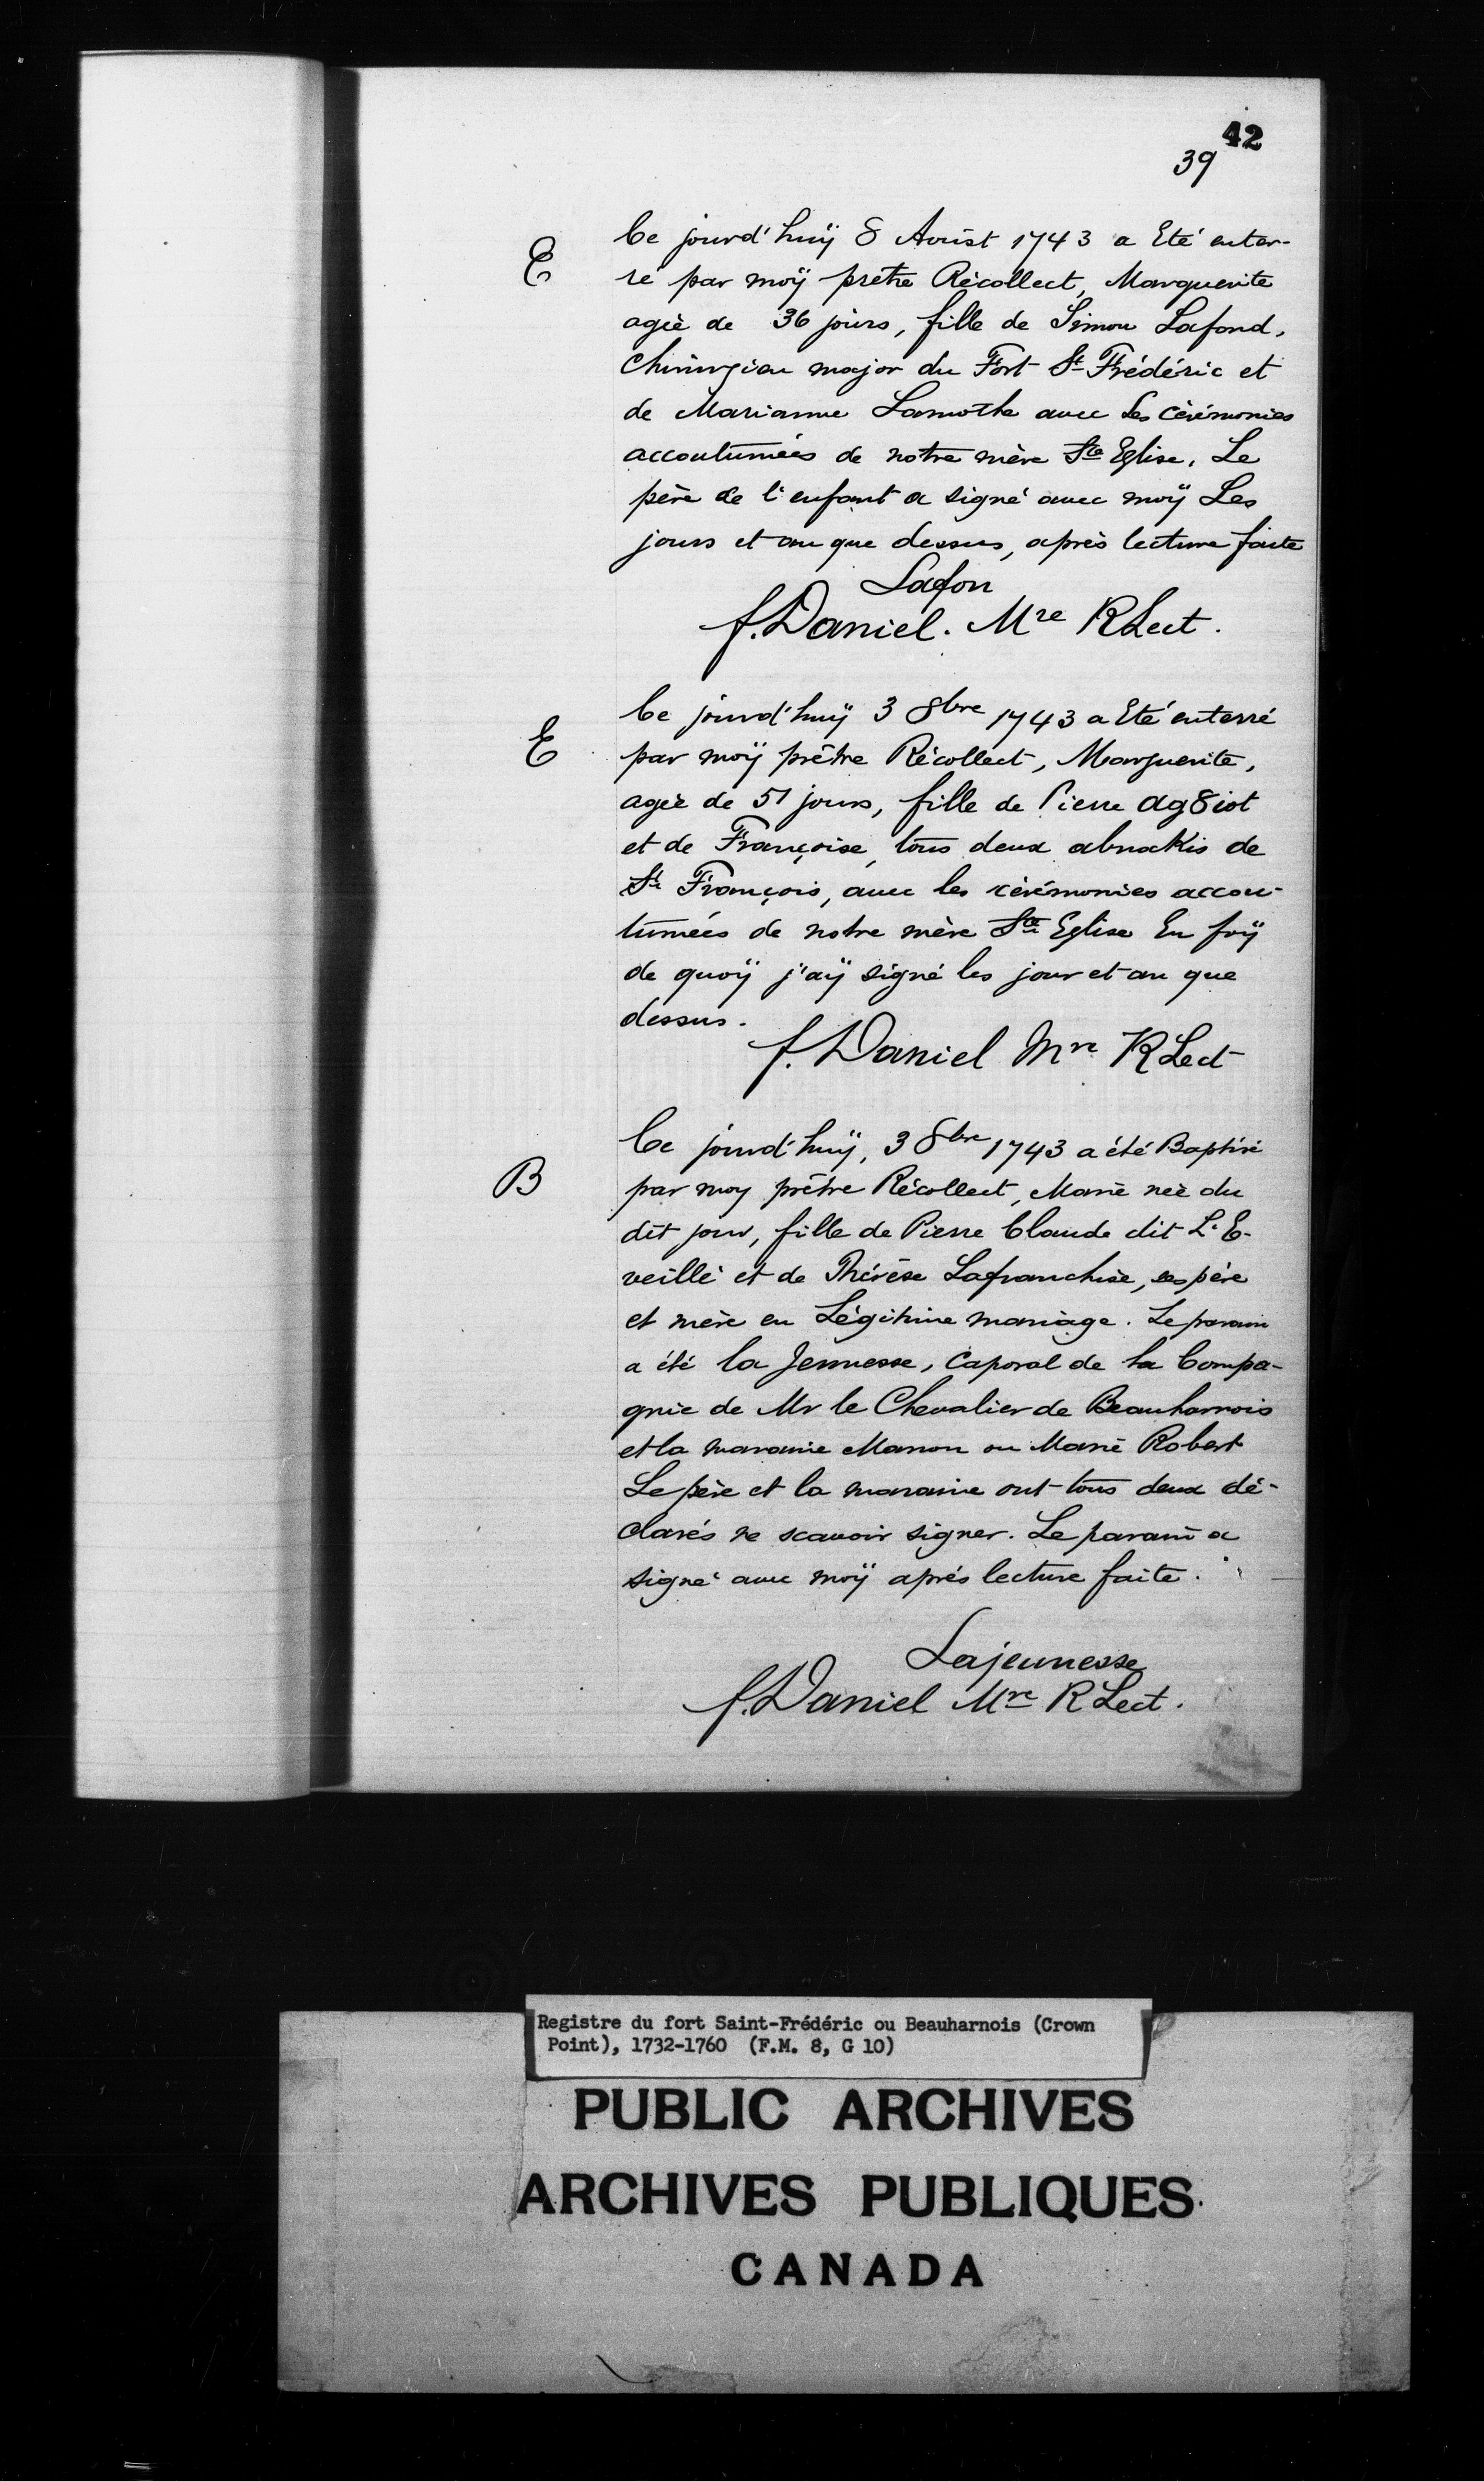 42
39
E
Ce jourd'huÿ 8 Aoûst 1743 a Eté enter-
ré par moÿ prêtre Récollect, Marguerite
agée de 36 jours, fille de Simon Lafond,
Chirurgien major du Fort St Frédéric et
de Marianne Lamothe avec Les Cérémonies
accoutumées de notre mère Ste Eglise. Le
père de l'enfant a signé avec moÿ Les
jours et an que dessus, après lecture faite
Lafon
f. Daniel. Mre RLect.
E
Ce jourd'huÿ 3 8bre 1743 a Eté enterré
par moÿ prêtre Récollect, Marguerite,
agée de 51 jours, fille de Pierre Ag8iot
et de Françoise, tous deux abnakis de
St François, avec les cérémonies accou-
tumées de notre mère Ste Eglise En foÿ
de quoÿ j'aÿ signé les jour et an que
dessus.
f. Daniel Mre RLect
B
Ce jourd'huÿ, 3 8bre 1743 a été Baptisé
par moy prêtre Récollect, Marie née du
dit jour, fille de Pierre Claude dit L'E-
veillé et de Thérèse Lafranchise, ses père
et mère en Légitime mariage. Le parain
a été la Jeunesse, Caporal de la Compa-
gnie de Mr le Chevalier de Beauharnois
et la maraine Manon ou Marie Robert
Le père et la maraine ont tous deux dé-
clarés ne scavoir signer. Le parain a
signé avec moÿ après lecture faite.
Lajeunesse
f. Daniel Mre RLect.
Registre du fort Saint-Frédéric ou Beauharnois (Crown
Point), 1732-1760 (F.M. 8, G 10)
PUBLIC ARCHIVES
ARCHIVES PUBLIQUES
CANADA